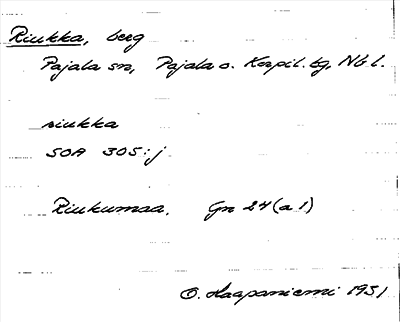 Riukka, berg
Pajala sn, Pajala o. Korpil. tg, Nb l.
riukka
SOA 305:j
Riukumaa. Gn 24 (a 1)
O. Haapaniemi 1951